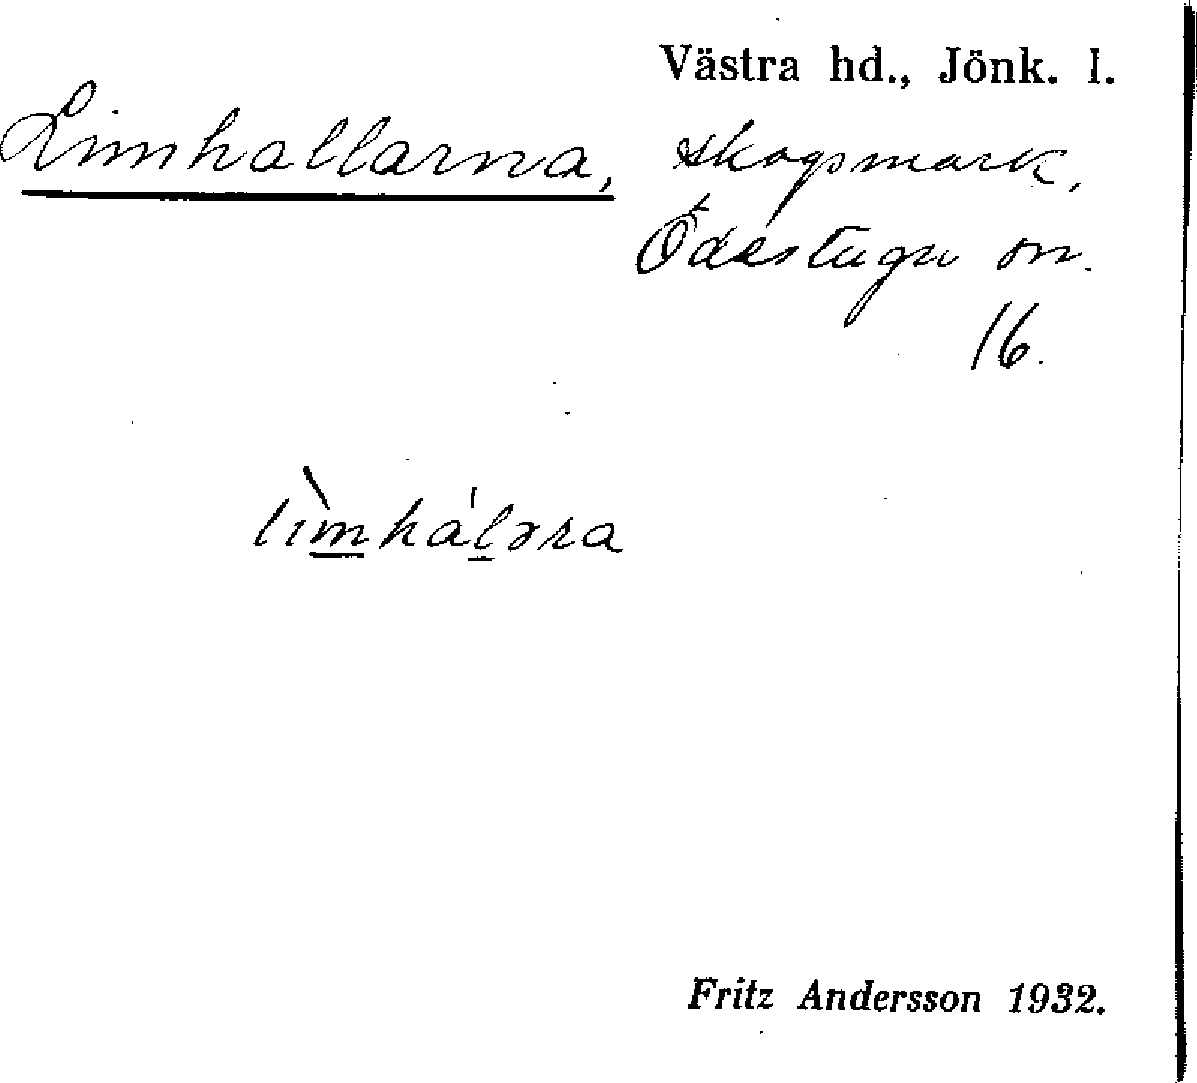 Västra hd., Jönk. l.
Limhallarna, skogsmark,
Ödestugu sn.
16.
lìmháləra
Fritz Andersson 1932.